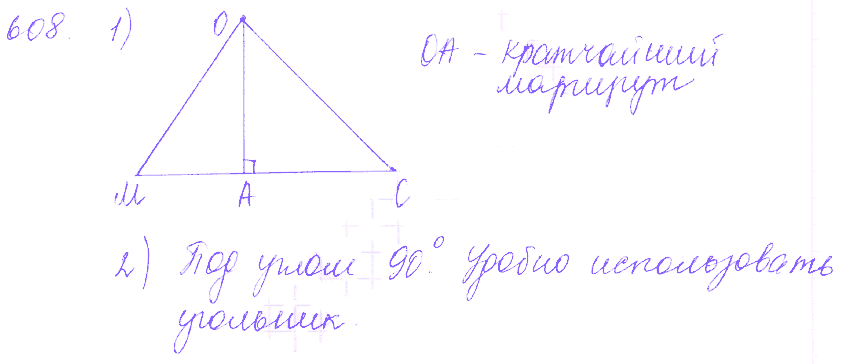 608. 1)
O
OA – кратчайший
маршрут
M A C
2) Под углом 90°. Удобно использовать
угольник